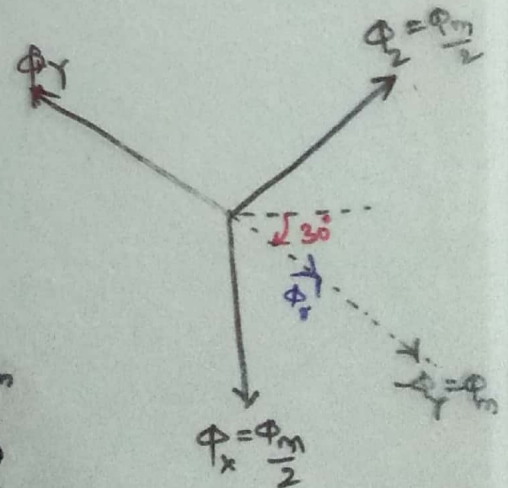 Φ_Y
Φ_Z = Φ_m/2
30°
Φ_r
-Φ_Y = Φ_m
Φ_x = Φ_m/2